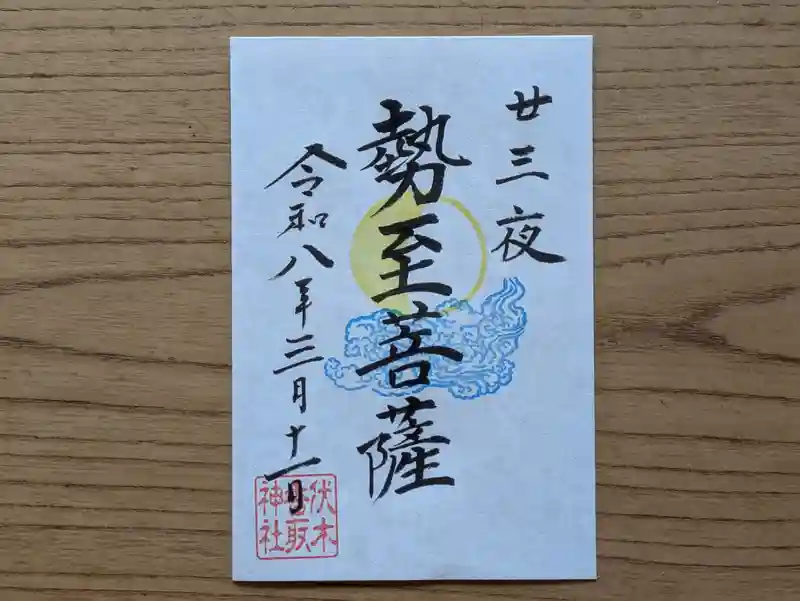 廿三夜
勢至菩薩
令和八年三月十一日
伏木
取
神社